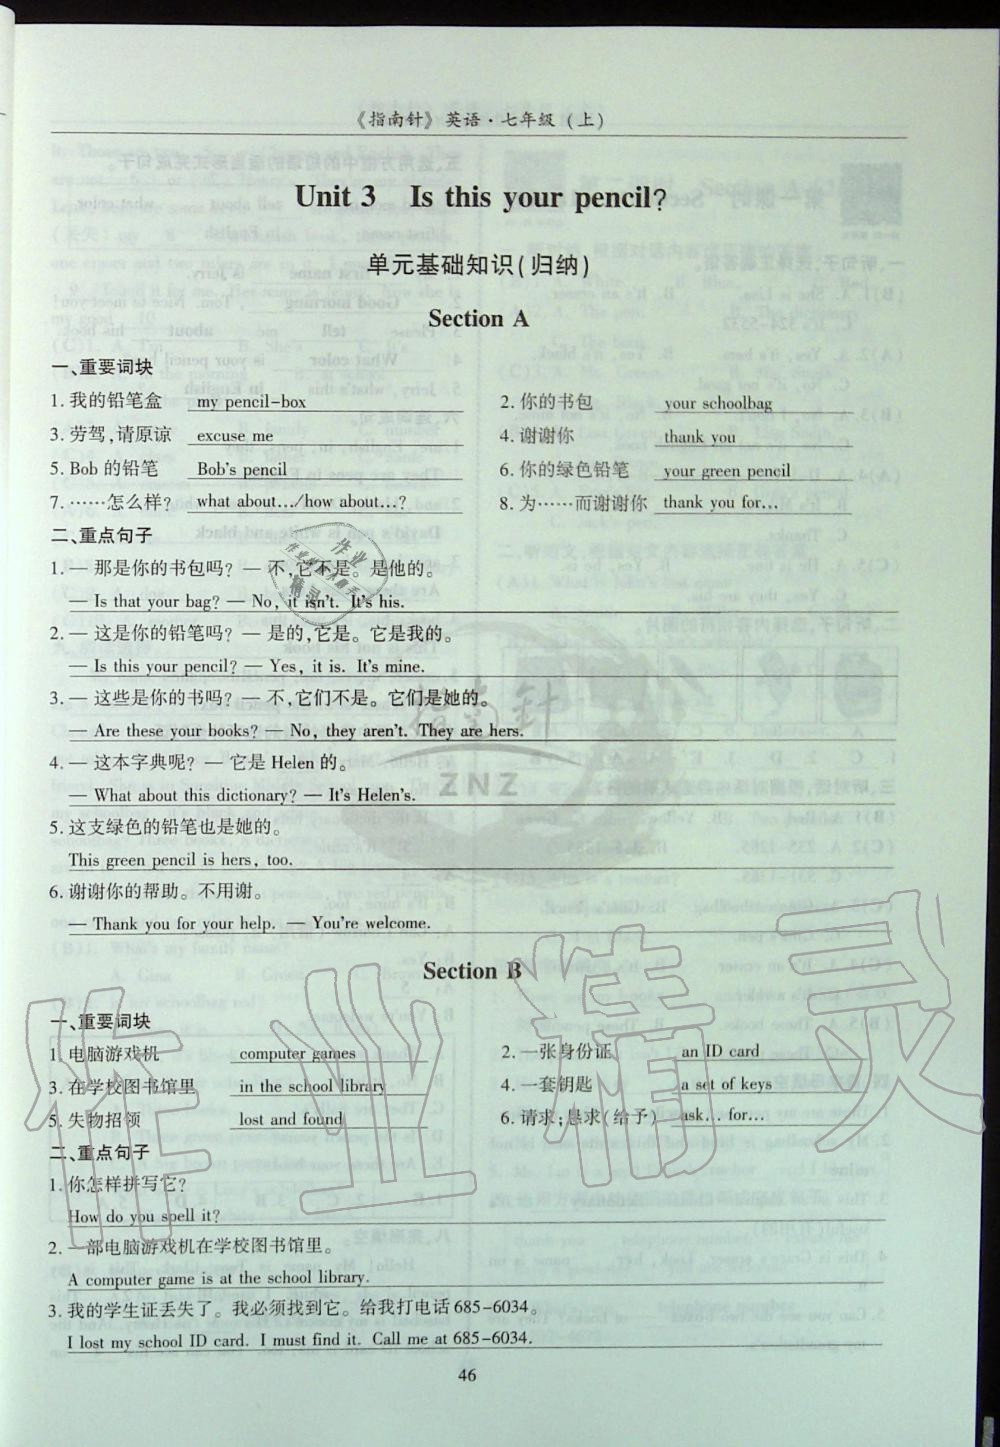 《指南针》英语·七年级(上)
Unit 3 Is this your pencil?
单元基础知识(归纳)
Section A
一、重要词块
1. 我的铅笔盒 my pencil-box 2. 你的书包 your schoolbag
3. 劳驾,请原谅 excuse me 4. 谢谢你 thank you
5. Bob 的铅笔 Bob's pencil 6. 你的绿色铅笔 your green pencil
7. ……怎么样? what about…/how about…? 8. 为……而谢谢你 thank you for…
二、重点句子
1. — 那是你的书包吗? — 不,它不是。是他的。
— Is that your bag? — No, it isn't. It's his.
2. — 这是你的铅笔吗? — 是的,它是。它是我的。
— Is this your pencil? — Yes, it is. It's mine.
3. — 这些是你的书吗? — 不,它们不是。它们是她的。
— Are these your books? — No, they aren't. They are hers.
4. — 这本字典呢? — 它是 Helen 的。
— What about this dictionary? — It's Helen's.
5. 这支绿色的铅笔也是她的。
This green pencil is hers, too.
6. 谢谢你的帮助。不用谢。
— Thank you for your help. — You're welcome.
指南针
ZNZ
Section B
一、重要词块
1. 电脑游戏机 computer games 2. 一张身份证 an ID card
3. 在学校图书馆里 in the school library 4. 一套钥匙 a set of keys
5. 失物招领 lost and found 6. 请求;恳求(给予) ask… for…
二、重点句子
1. 你怎样拼写它?
How do you spell it?
2. 一部电脑游戏机在学校图书馆里。
A computer game is at the school library.
3. 我的学生证丢失了。我必须找到它。给我打电话 685-6034。
I lost my school ID card. I must find it. Call me at 685-6034.
46
作业精灵